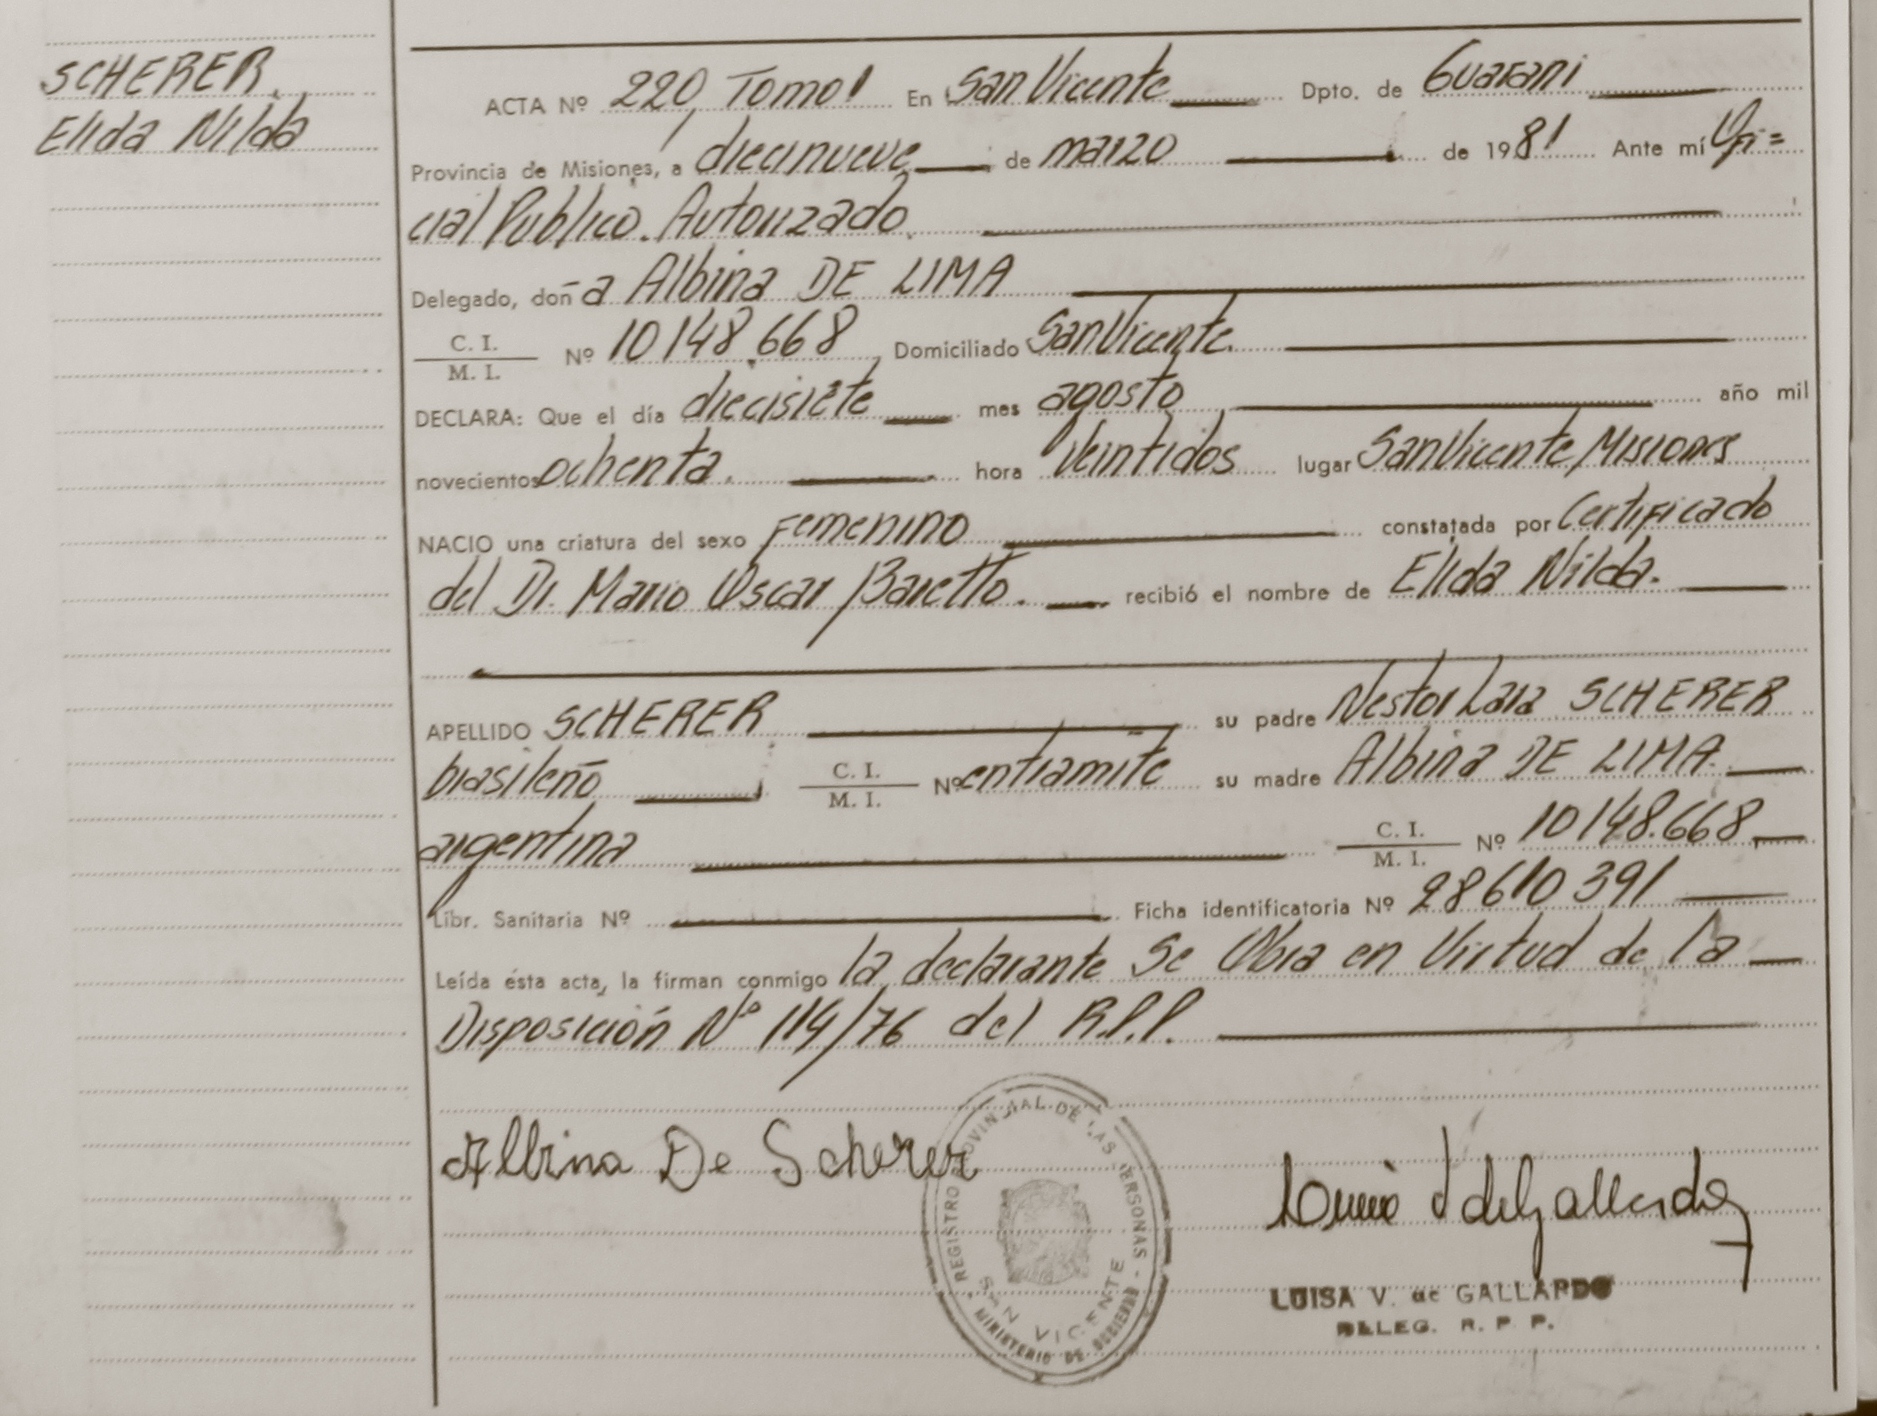 SCHERER.
Elida Nilda
ACTA Nº 220, Tomo I En San Vicente Dpto. de Guarani
Provincia de Misiones, a diecinueve de marzo de 1981 Ante mí Ofi=
cial Publico. Autorizado.
Delegado, doña Albina DE LIMA
C. I.
M. I.
Nº 10148.668 Domiciliado San Vicente.
DECLARA: Que el día diecisiete mes agosto año mil
novecientos ochenta. hora Veintidos lugar San Vicente, Misiones
NACIO una criatura del sexo Femenino constatada por Certificado
del Dr. Mario Oscar Baretto. recibió el nombre de Elida Nilda.
APELLIDO SCHERER su padre Nestor Lara SCHERER
brasileño C. I.
M. I. Nº en tramite su madre Albina DE LIMA.
argentina C. I.
M. I. Nº 10148.668
Libr. Sanitaria Nº Ficha identificatoria Nº 28610391
Leída ésta acta, la firman conmigo la declarante Se Obra en Virtud de la
Disposición Nº 114/76 del R.P.P.
Albina De Scherer
REGISTRO PROVINCIAL DE LAS PERSONAS
SAN VICENTE
MINISTERIO DE GOBIERNO
LUISA V. de GALLARDO
DELEG. R. P. P.